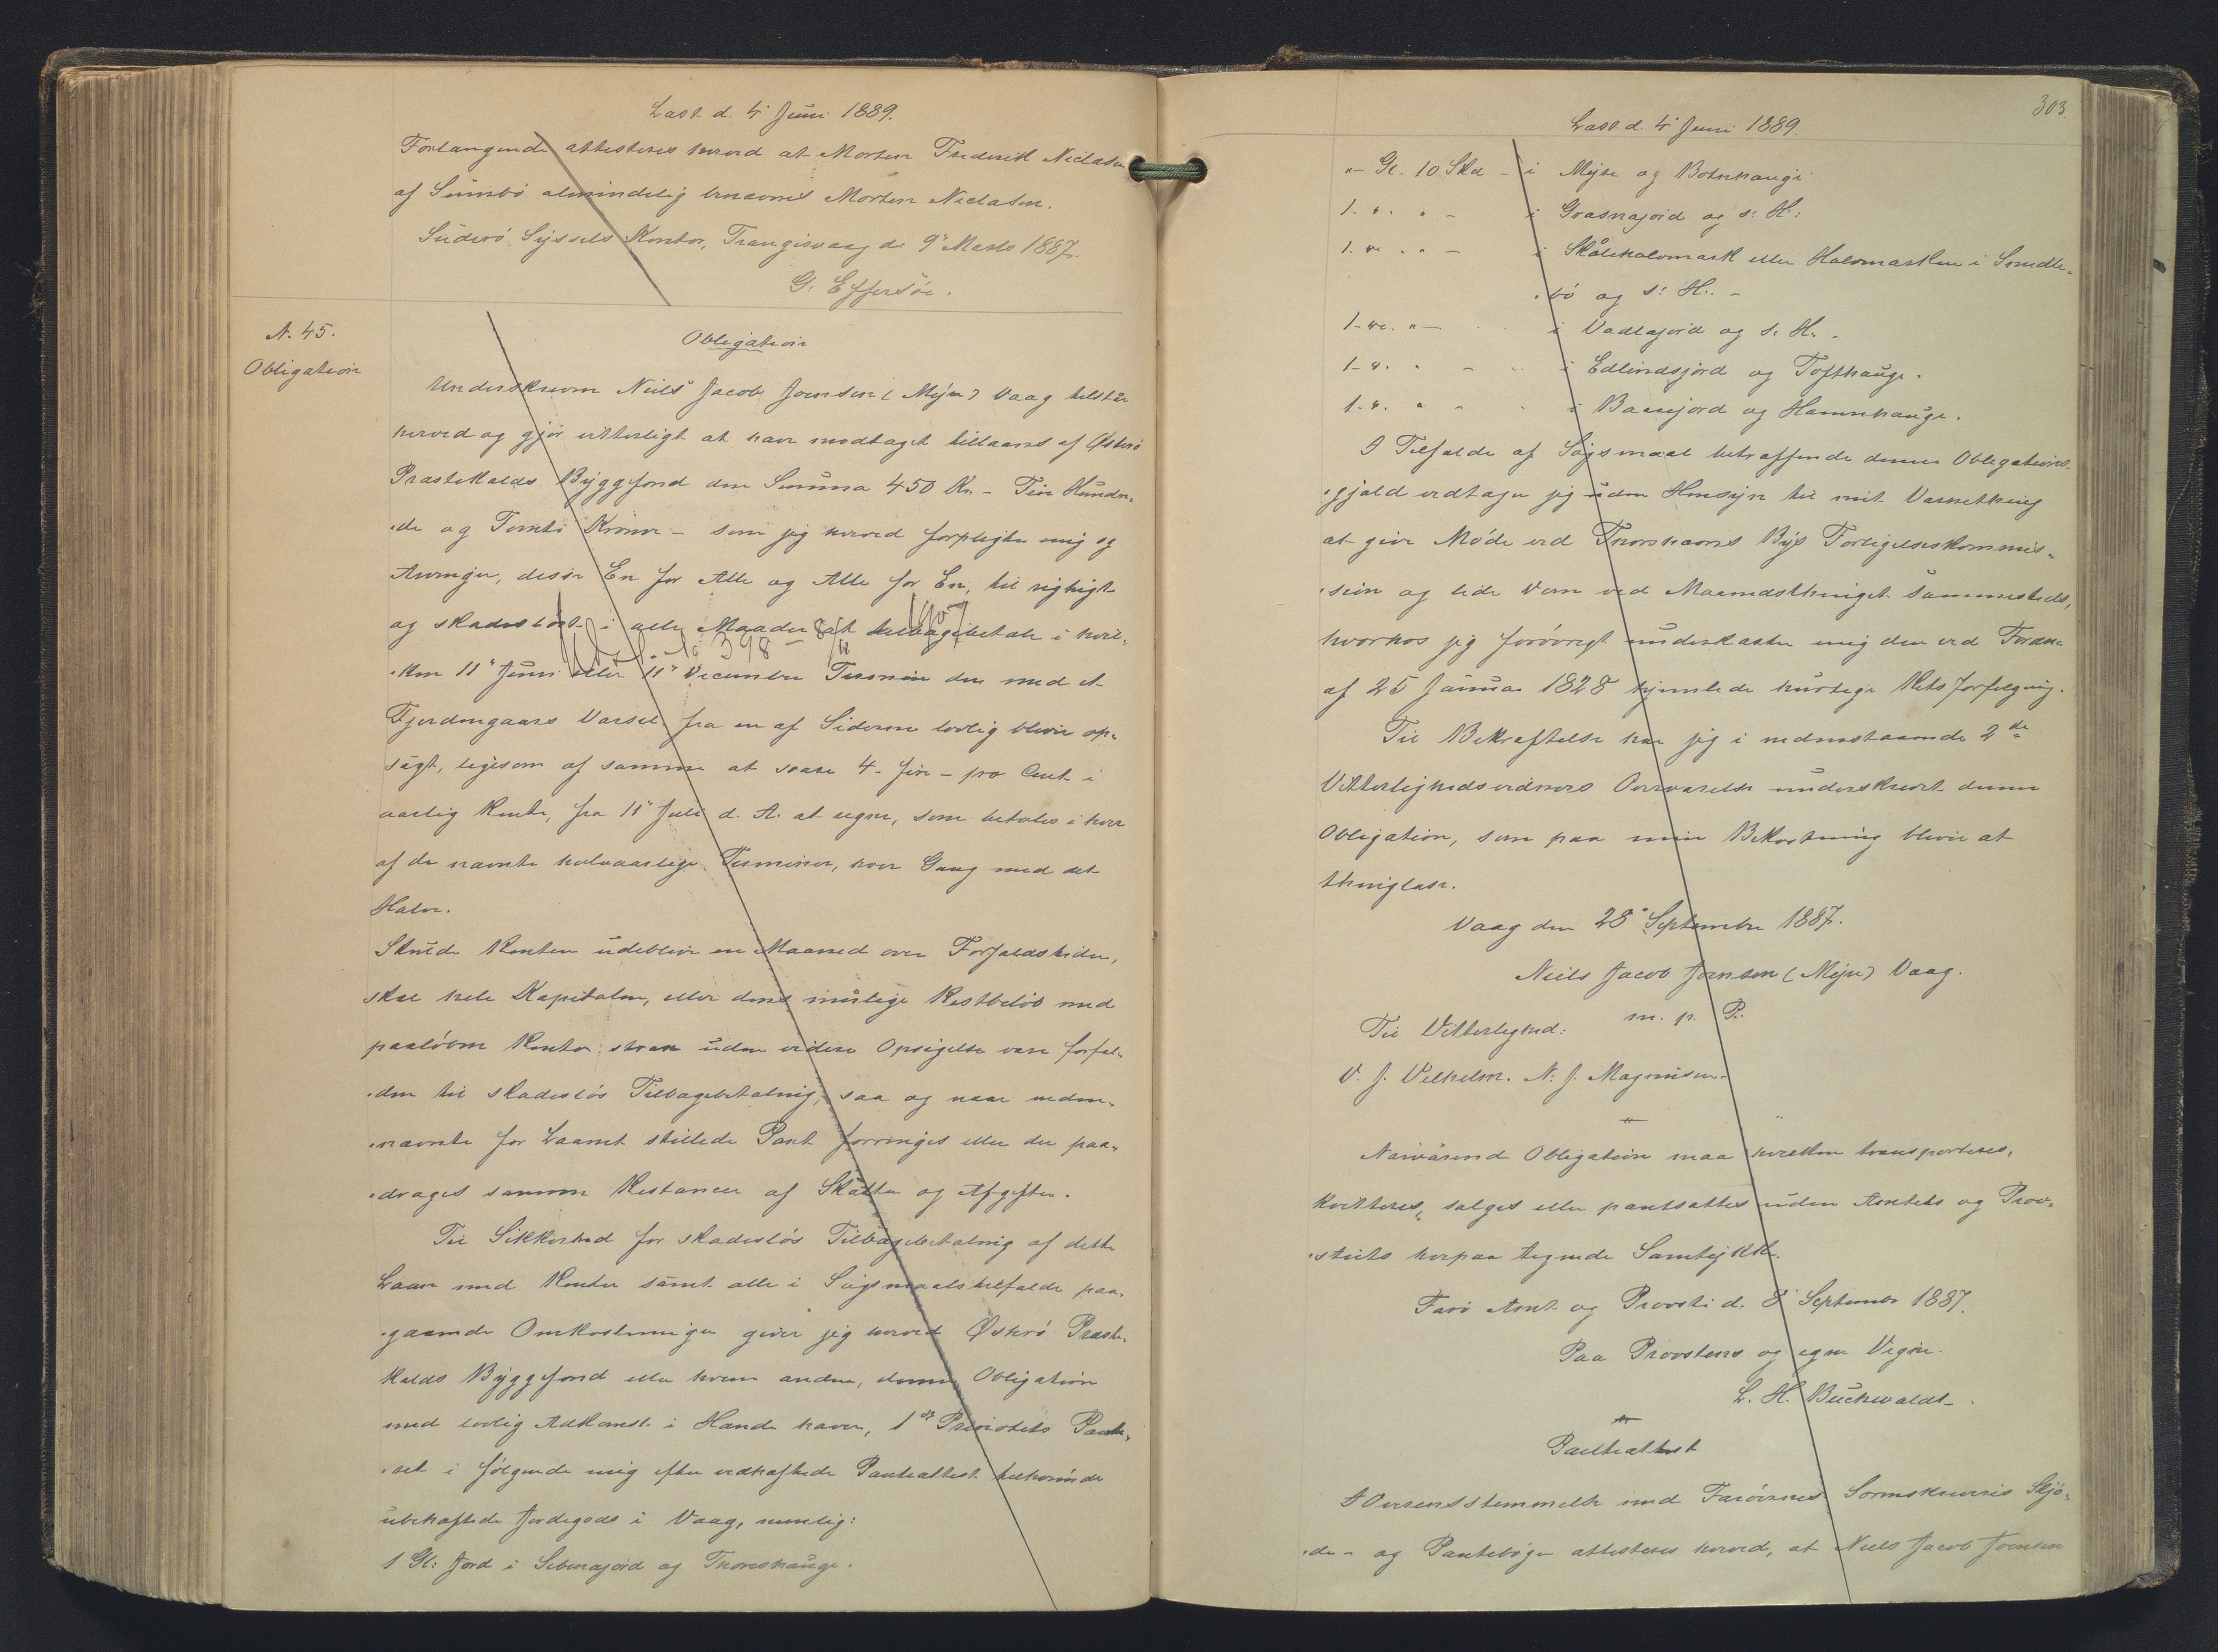 Læst d. 4' Juni 1889.
Forlangende attesteres herved at Morten Frederik Niclasen
af Sumbö almindelig benævnes Morten Niclasen.
Suderö Syssels Kontor, Trangisvaag d. 9' Marts 1887.
G. Effersöe.
N. 45.
Obligation
Obligation
Underskreven Niels Jacob Joensen (Mýri) Vaag tilstaar
herved og gjör vitterligt at have modtaget tillaans af Østerö
Præstekalds Byggefond den Summa 450 Kr. - Fire Hundre-
-de og Femti Kroner - som jeg herved forpligter mig og
Arvinger, desse En for Alle og Alle for En, til rigtigt
og skadeslöst i alle Maader at tilbagebetale i hvil-
-ken 11' Juni eller 11' December Termin den med et
Udsl. No 398 - 8/12 1907
Fjerdingaars Varsel fra en af Siderne lovlig bliver op-
sagt, ligesom af samme at svare 4 - fire - pro Cent i
aarlig Rente, fra 11' Juli d. A. at regne, som betales i hver
af de nævnte halvaarlige Terminer, hver Gang med det
Halve.
Skulde Renten udeblive en Maaned over Forfaldstiden,
skal hele Kapitalen, eller dens mulige Restbelöb med
paalöben Rente strax uden videre Opsigelse være forfal-
-den til skadeslös Tilbagebetaling, saa og naar neden-
-nævnte for Laanet stillede Pant forringes eller der paa-
-drages samme Restancer af Skatter og Afgifter.
Til Sikkerhed for skadeslös Tilbagebetaling af dette
Laan med Renter samt alle i Sögsmaalstilfælde paa-
-gaaende Omkostninger giver jeg herved Østerö Præste-
kalds Byggefond eller hvem anden, denne Obligation
med lovlig Adkomst i Hænde haver, 1ste Prioritets Pante-
-ret i fölgende mig efter vedhæftede Panteattest tilhörende
ubehæftede Jordegods i Vaag, nemlig:
1 Gl: Jord i Seberajord og Thoreshauge.
303
Læst d. 4' Juni 1889.
"- Gl. 10 Skd - i Mýre og Botnhauge
1. " . " - i Grasnajord og s: H:
1. " . " - i Skålehalvmark eller Halvmarken i Smedle-
-bö og s: H: -
1 - " . " - i Vadlajord og s. H. -
1 - " . " - i Edlindsjord og Tofthauge.
1 - " . " - i Baarejord og Hamnhauge.
I Tilfælde af Sögsmaal betræffende denne Obligations-
-gjæld vedtager jeg uden Hensyn til mit Værnething
at give Möde ved Thorshavns Byes Forligelseskommis-
-sion og lide Dom ved Maanedsthinget sammesteds,
hvorhos jeg forövrigt underkaster mig den ved Foran.
af 25 Januar 1828 hjemlede hurtige Retsforfölgning.
Til Bekræftelse har jeg i nedenstaaende 2de
Vitterlighedsvidners Overværelse underskrevet denne
Obligation, som paa min Bekostning bliver at
thinglæse.
Vaag den 28' September 1887.
Niels Jacob Joensen (Mýri) Vaag.
m. p. P.
Til Vitterlighed:
V. J. Vilhelm. N. J. Magnusen.
Nærværende Obligation maa hverken transporteres,
kvitteres, sælges eller pantsættes uden Amtets og Prov-
-stiets herpaa tegnede Samtykke.
Færö Amt og Provsti d. 8' September 1887.
Paa Provstens og egne Vegne.
L. H. Buchwaldt
Panteattest
I Overensstemmelse med Færöernes Sorenskriveris Skjö-
-de - og Pantebøger attesteres herved, at Niels Jacob Joensen